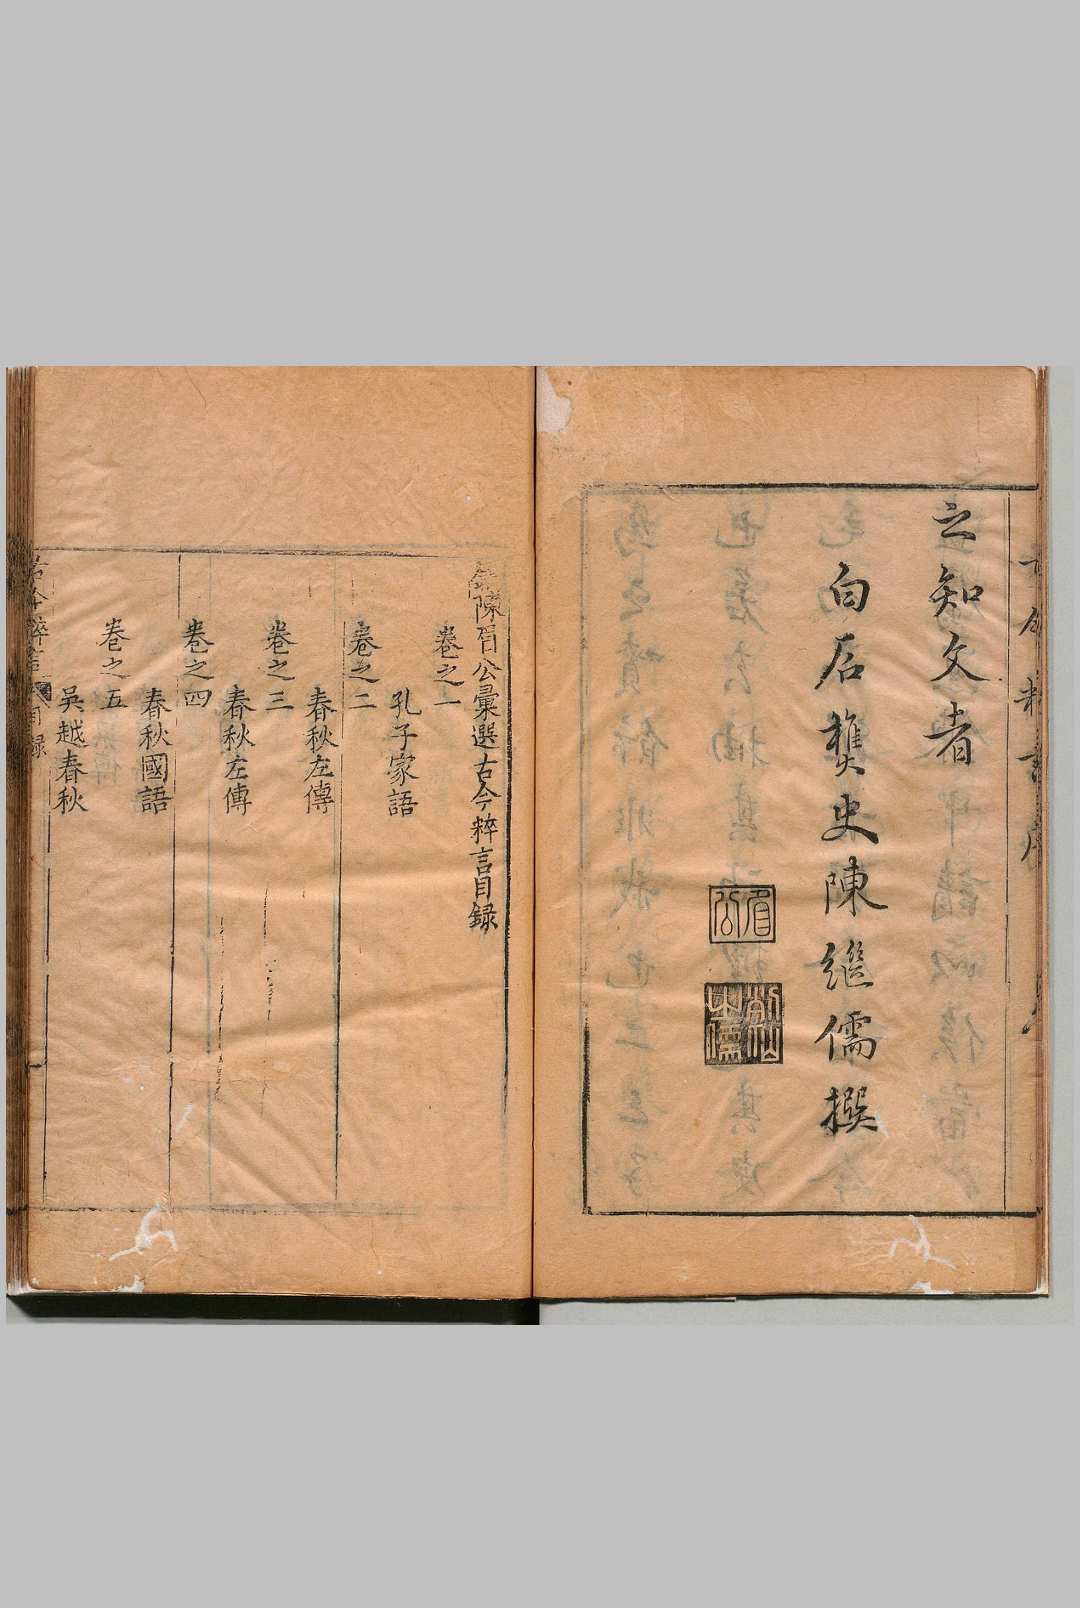 之知文者
白石樵史陳繼儒撰
眉公
陳眉公彙選古今粹言目録
卷之一
孔子家語
卷之二
春秋左傳
卷之三
春秋左傳
卷之四
春秋國語
卷之五
吳越春秋
古今粹言 目録